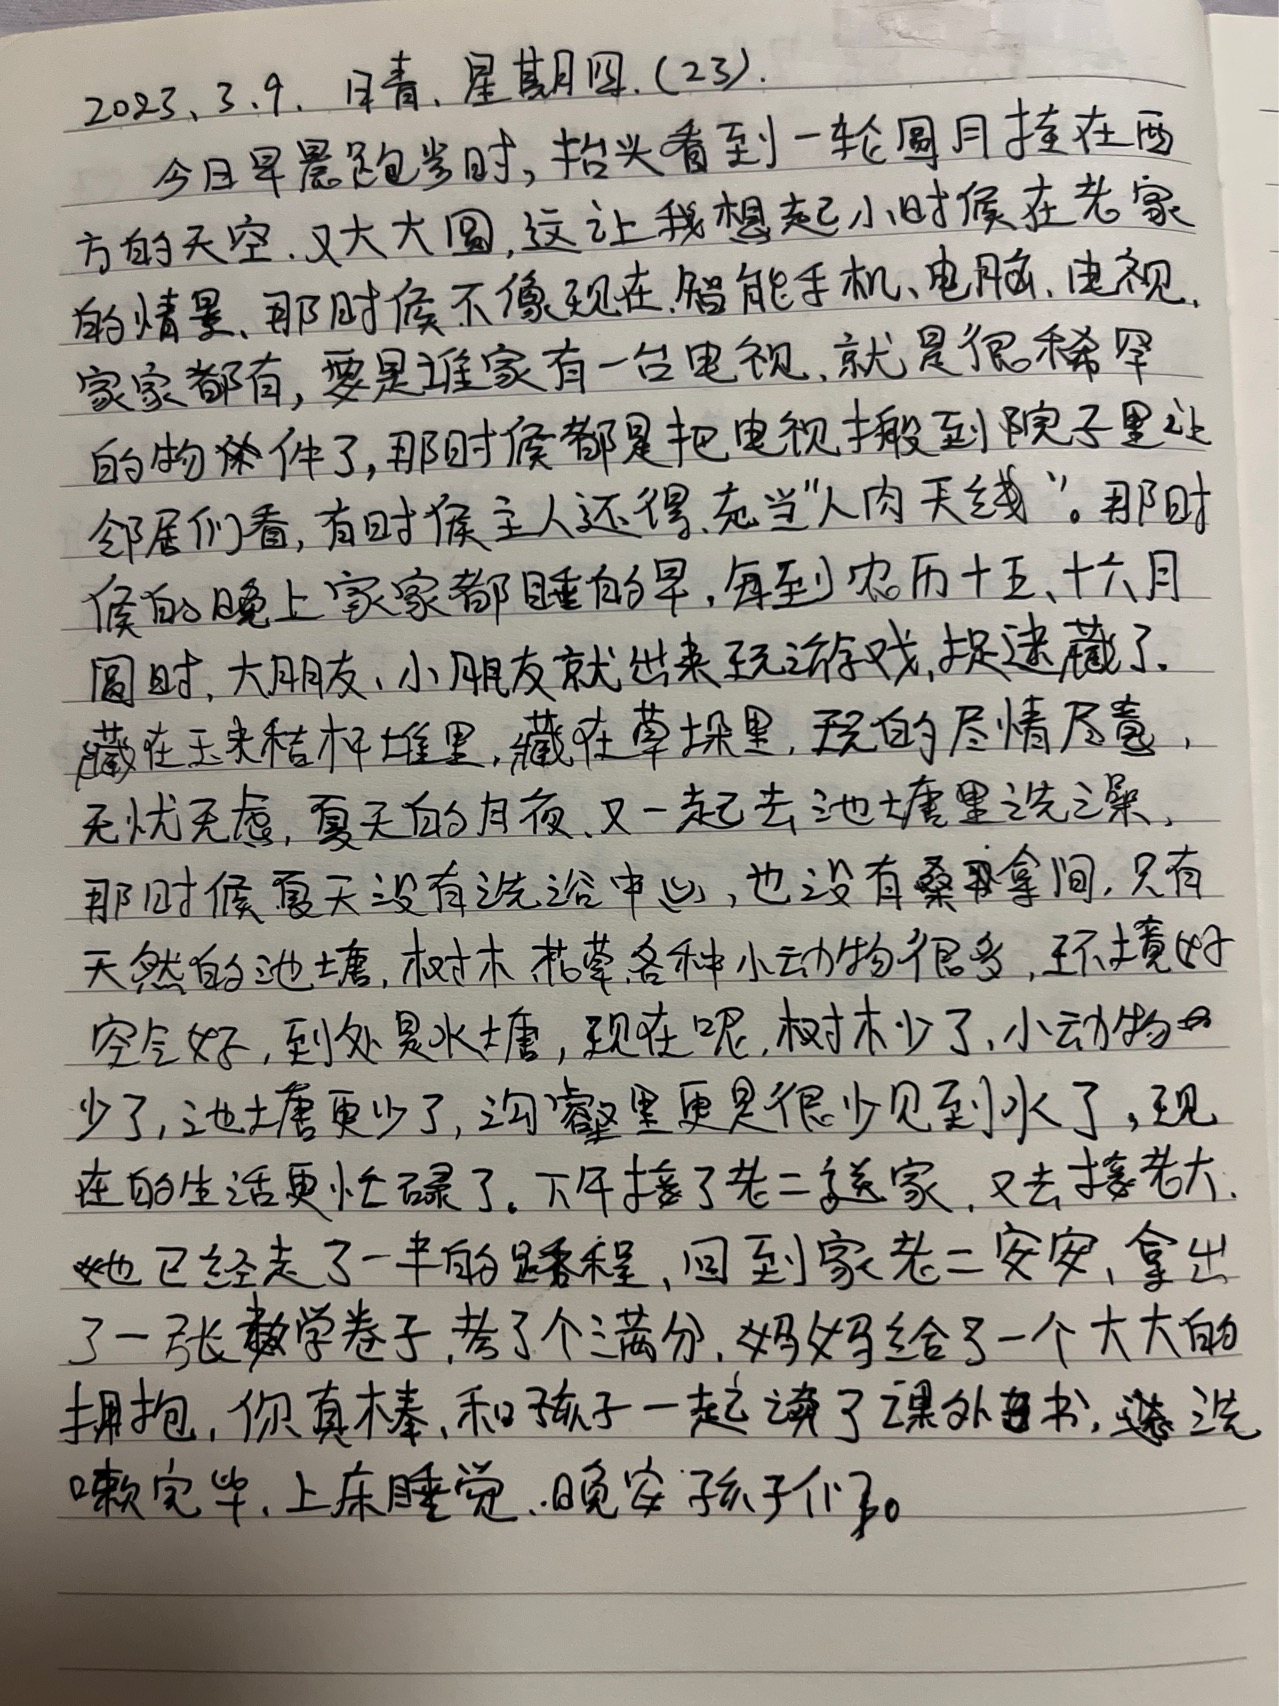 2023、3.9. 晴. 星期四.(23).
今日早晨跑步时,抬头看到一轮圆月挂在西
方的天空.又大大圆,这让我想起小时候在老家
的情景、那时候不像现在.智能手机、电脑、电视.
家家都有,要是谁家有一台电视.就是很稀罕
的物件了,那时候都是把电视搬到院子里让
邻居们看,有时候主人还得.充当"人肉天线"。那时
候的晚上家家都睡的早.每到农历十五、十六月
圆时.大朋友、小朋友就出来玩游戏,捉迷藏了.
藏在玉米秸杆堆里.藏在草垛里.玩的尽情尽意,
无忧无虑.夏天的月夜、又一起去池塘里洗澡.
那时候夏天没有洗浴中心,也没有桑拿间.只有
天然的池塘.树木花草各种小动物很多,环境好
空气好,到处是水塘,现在呢.树木少了、小动物
少了,池塘更少了,沟壑里更是很少见到水了,现
在的生活更忙碌了。下午接了老二送家.又去接老大.
她已经走了一半的路程、回到家老二安安、拿出
了一张数学卷子.考了个满分.妈妈给了一个大大的
拥抱.你真棒、和孩子一起读了课外书.洗
嗽完毕、上床睡觉、晚安孩子们。